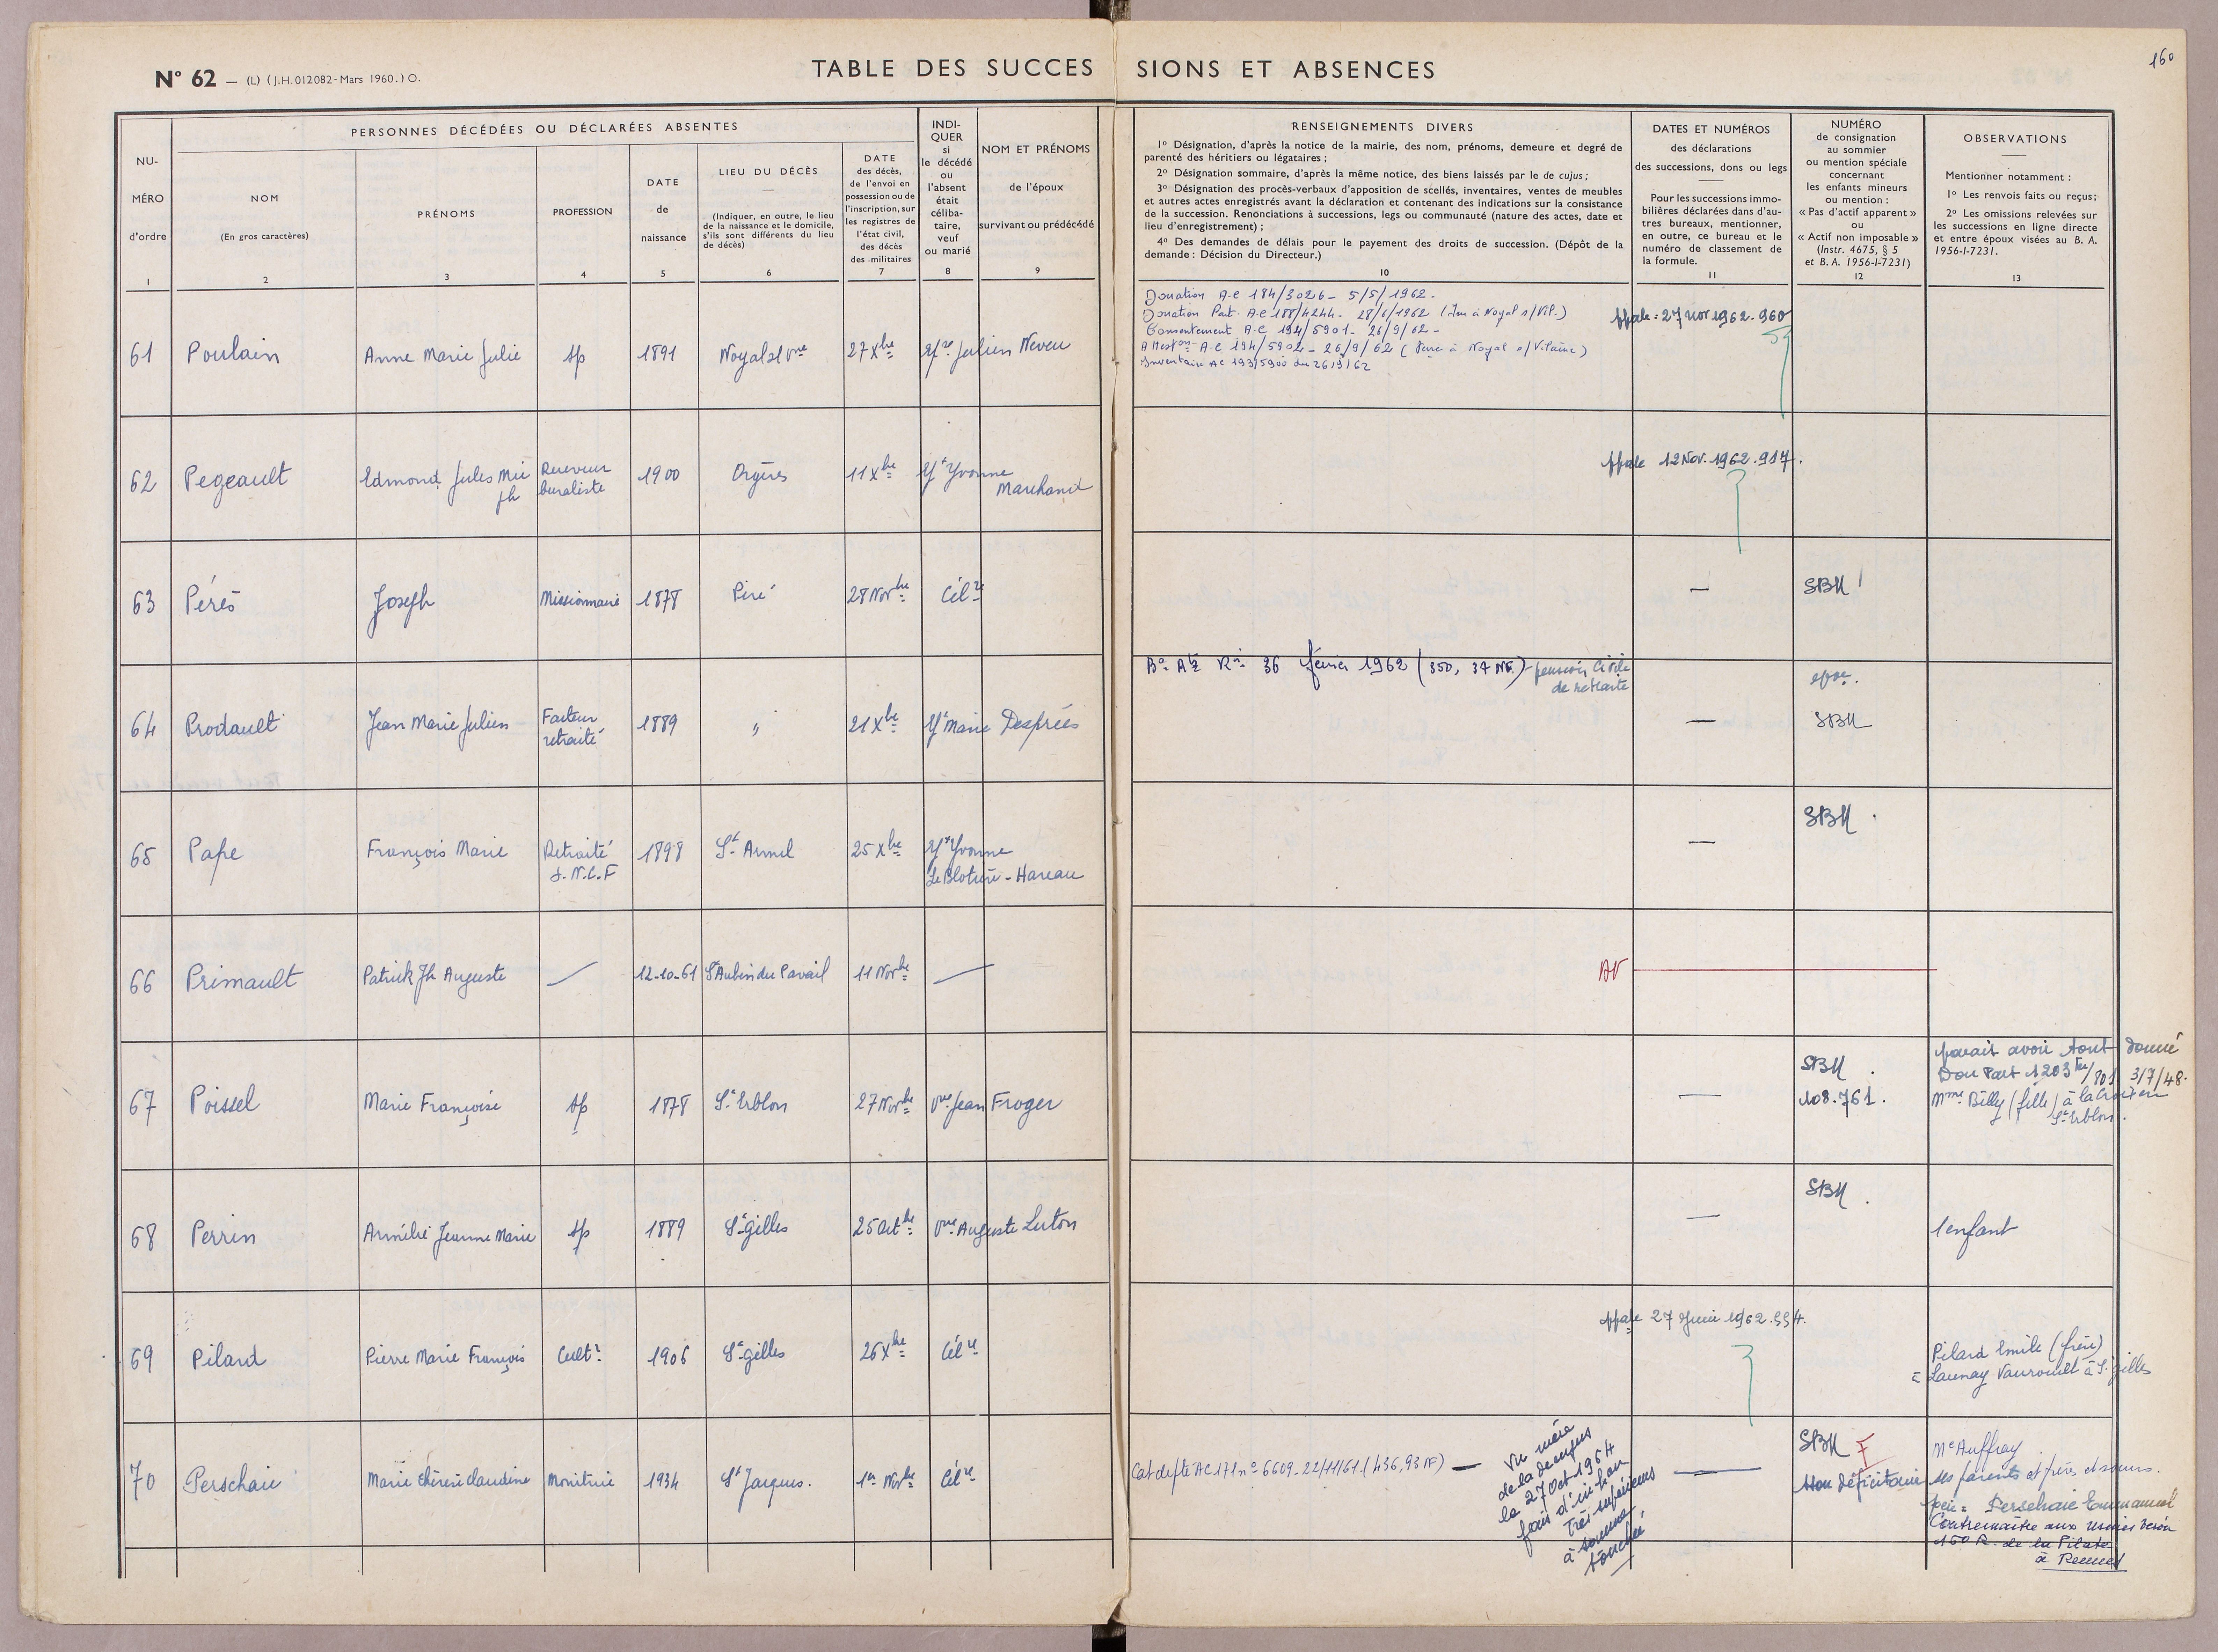 160
N° 62 — (L) (J.H. 012082 - Mars 1960.) O.
TABLE DES SUCCESSIONS ET ABSENCES
NUMÉRO d'ordre
PERSONNES DÉCÉDÉES OU DÉCLARÉES ABSENTES
NOM
(En gros caractères)
PRÉNOMS
PROFESSION
DATE
de
naissance
LIEU DU DÉCÈS
—
(Indiquer, en outre, le lieu
de la naissance et le domicile,
s'ils sont différents du lieu
de décès)
DATE
des décès,
de l'envoi en
possession ou de
l'inscription, sur
les registres de
l'état civil,
des décès
des militaires
INDI-
QUER
si
le décédé
ou
l'absent
était
céliba-
taire,
veuf
ou marié
NOM ET PRÉNOMS
de l'époux
survivant ou prédécédé
RENSEIGNEMENTS DIVERS
1° Désignation, d'après la notice de la mairie, des nom, prénoms, demeure et degré de
parenté des héritiers ou légataires ;
2° Désignation sommaire, d'après la même notice, des biens laissés par le de cujus ;
3° Désignation des procès-verbaux d'apposition de scellés, inventaires, ventes de meubles
et autres actes enregistrés avant la déclaration et contenant des indications sur la consistance
de la succession. Renonciations à successions, legs ou communauté (nature des actes, date et
lieu d'enregistrement) ;
4° Des demandes de délais pour le payement des droits de succession. (Dépôt de la
demande : Décision du Directeur.)
DATES ET NUMÉROS
des déclarations
des successions, dons ou legs
Pour les successions immo-
bilières déclarées dans d'au-
tres bureaux, mentionner,
en outre, ce bureau et le
numéro de classement de
la formule.
NUMÉRO
de consignation
au sommier
ou mention spéciale
concernant
les enfants mineurs
ou mention :
« Pas d'actif apparent »
ou
« Actif non imposable »
(Instr. 4675, § 5
et B. A. 1956-I-7231)
OBSERVATIONS
Mentionner notamment :
1° Les renvois faits ou reçus ;
2° Les omissions relevées sur
les successions en ligne directe
et entre époux visées au B. A.
1956-I-7231.
1 2 3 4 5 6 7 8 9 10 11 12 13
Donation A.C 184/3026 - 5/5/1962.
Donation Part. A.C 188/4244. 28/6/1962 (Im à Noyal s/Vil.)
Consentement A.C 194/5901 - 26/9/62 -
Atteston A.C 194/5902 - 26/9/62 ( à Noyal s/Vilaine)
Inventaire AC 193/5900 du 26/9/62
61 Poulain Anne Marie Julie sp 1891 Noyal s/ Vne 27 Xbre Julien Neveu
27 Nov 1962. 960
62 Pegeault Edmond Jules Mie Jh Receveur buraliste 1900 Orgères 11 Xbre Yvonne Marchand
12 Nov. 1962. 917.
63 Pérès Joseph Missionnaire 1878 Piré 28 Novbre Célre — SBM
février 1962 (350, 37 NF.) pension civile de retraite
64 Prodault Jean Marie Julien Facteur retraité 1889 " 21 Xbre Marie Desprées — SBM
65 Pape François Marie Retraité S.N.C.F 1898 St Armel 25 Xbre Yvonne Hareau — SBM
66 Primault Patrick Jh Auguste — 12-10-61 St Aubin du Pavail 11 Novbre —
67 Poissel Marie Françoise sp 1878 St Erblon 27 Novbre Vve Jean Froger — SBM. 108.761.
parait avoir tout donné
Don Part 1203 /801 3/7/48.
Mme Billy (fille) à
St Erblon.
68 Perrin Armélie Jeanne Marie sp 1889 St Gilles 25 Octbre Vve Auguste Luton — SBM. 1 enfant
69 Pilard Pierre Marie François Cultr 1906 St Gilles 26 Xbre Célre
27 Juin 1962. 554.
Pilard Emile (frère)
à Launay Vaurouët à St gilles
70 Perschaie Marie Thérèse Claudine Monitrice 1934 St Jacques. 1er Novbre Célre
AC 171 n° 6609 - 22/11/61. (436,93 NF) —
Vu mère
de la de cujus
le 27 Oct 1964
frais d'inhum
Très supérieurs
à somme
touchée
— SBM
Non déficitaire
Me Auffray
ses parents et frères et soeurs.
père = Perschaie Emmanuel
Contremaître aux usines
160 R. de la Pilate
à Rennes